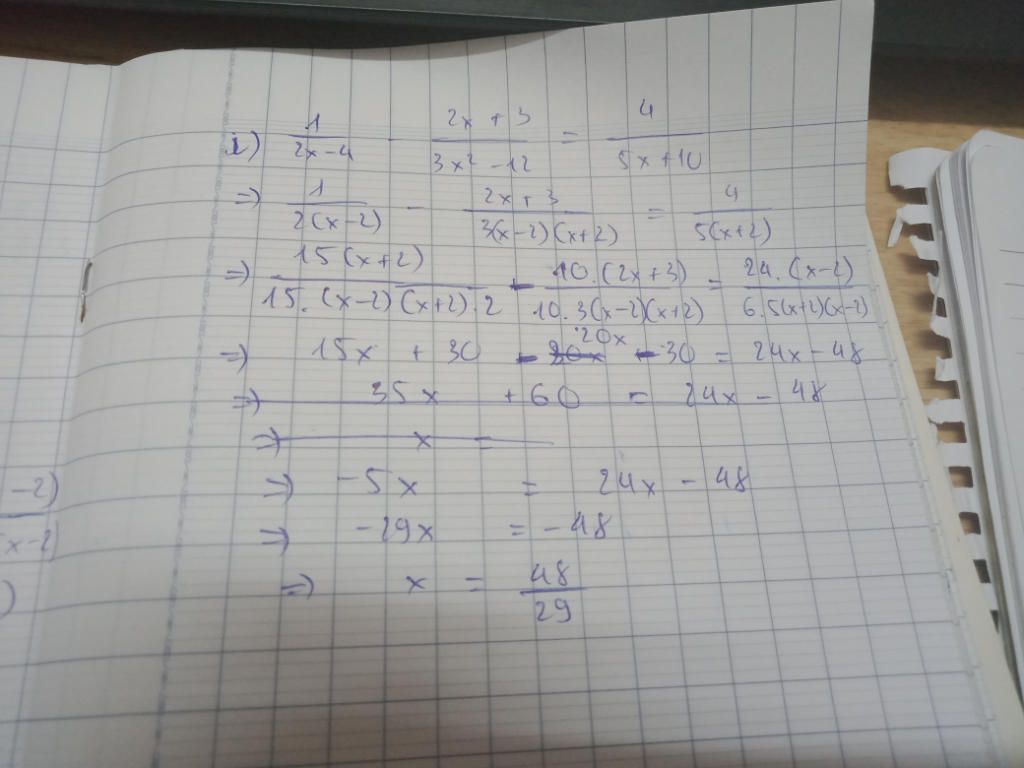 i) 1/(2x-4) - (2x+3)/(3x²-12) = 4/(5x+10)
=> 1/(2(x-2)) - (2x+3)/(3(x-2)(x+2)) = 4/(5(x+2))
=> 15(x+2)/(15.(x-2)(x+2).2) - 10.(2x+3)/(10.3(x-2)(x+2)) = 24.(x-2)/(6.5(x+2)(x-2))
=> 15x + 30 - 20x - 30 = 24x - 48
=> 35x + 60 = 24x - 48
=> x =
=> -5x = 24x - 48
=> -29x = -48
=> x = 48/29
-2)
x-2
)